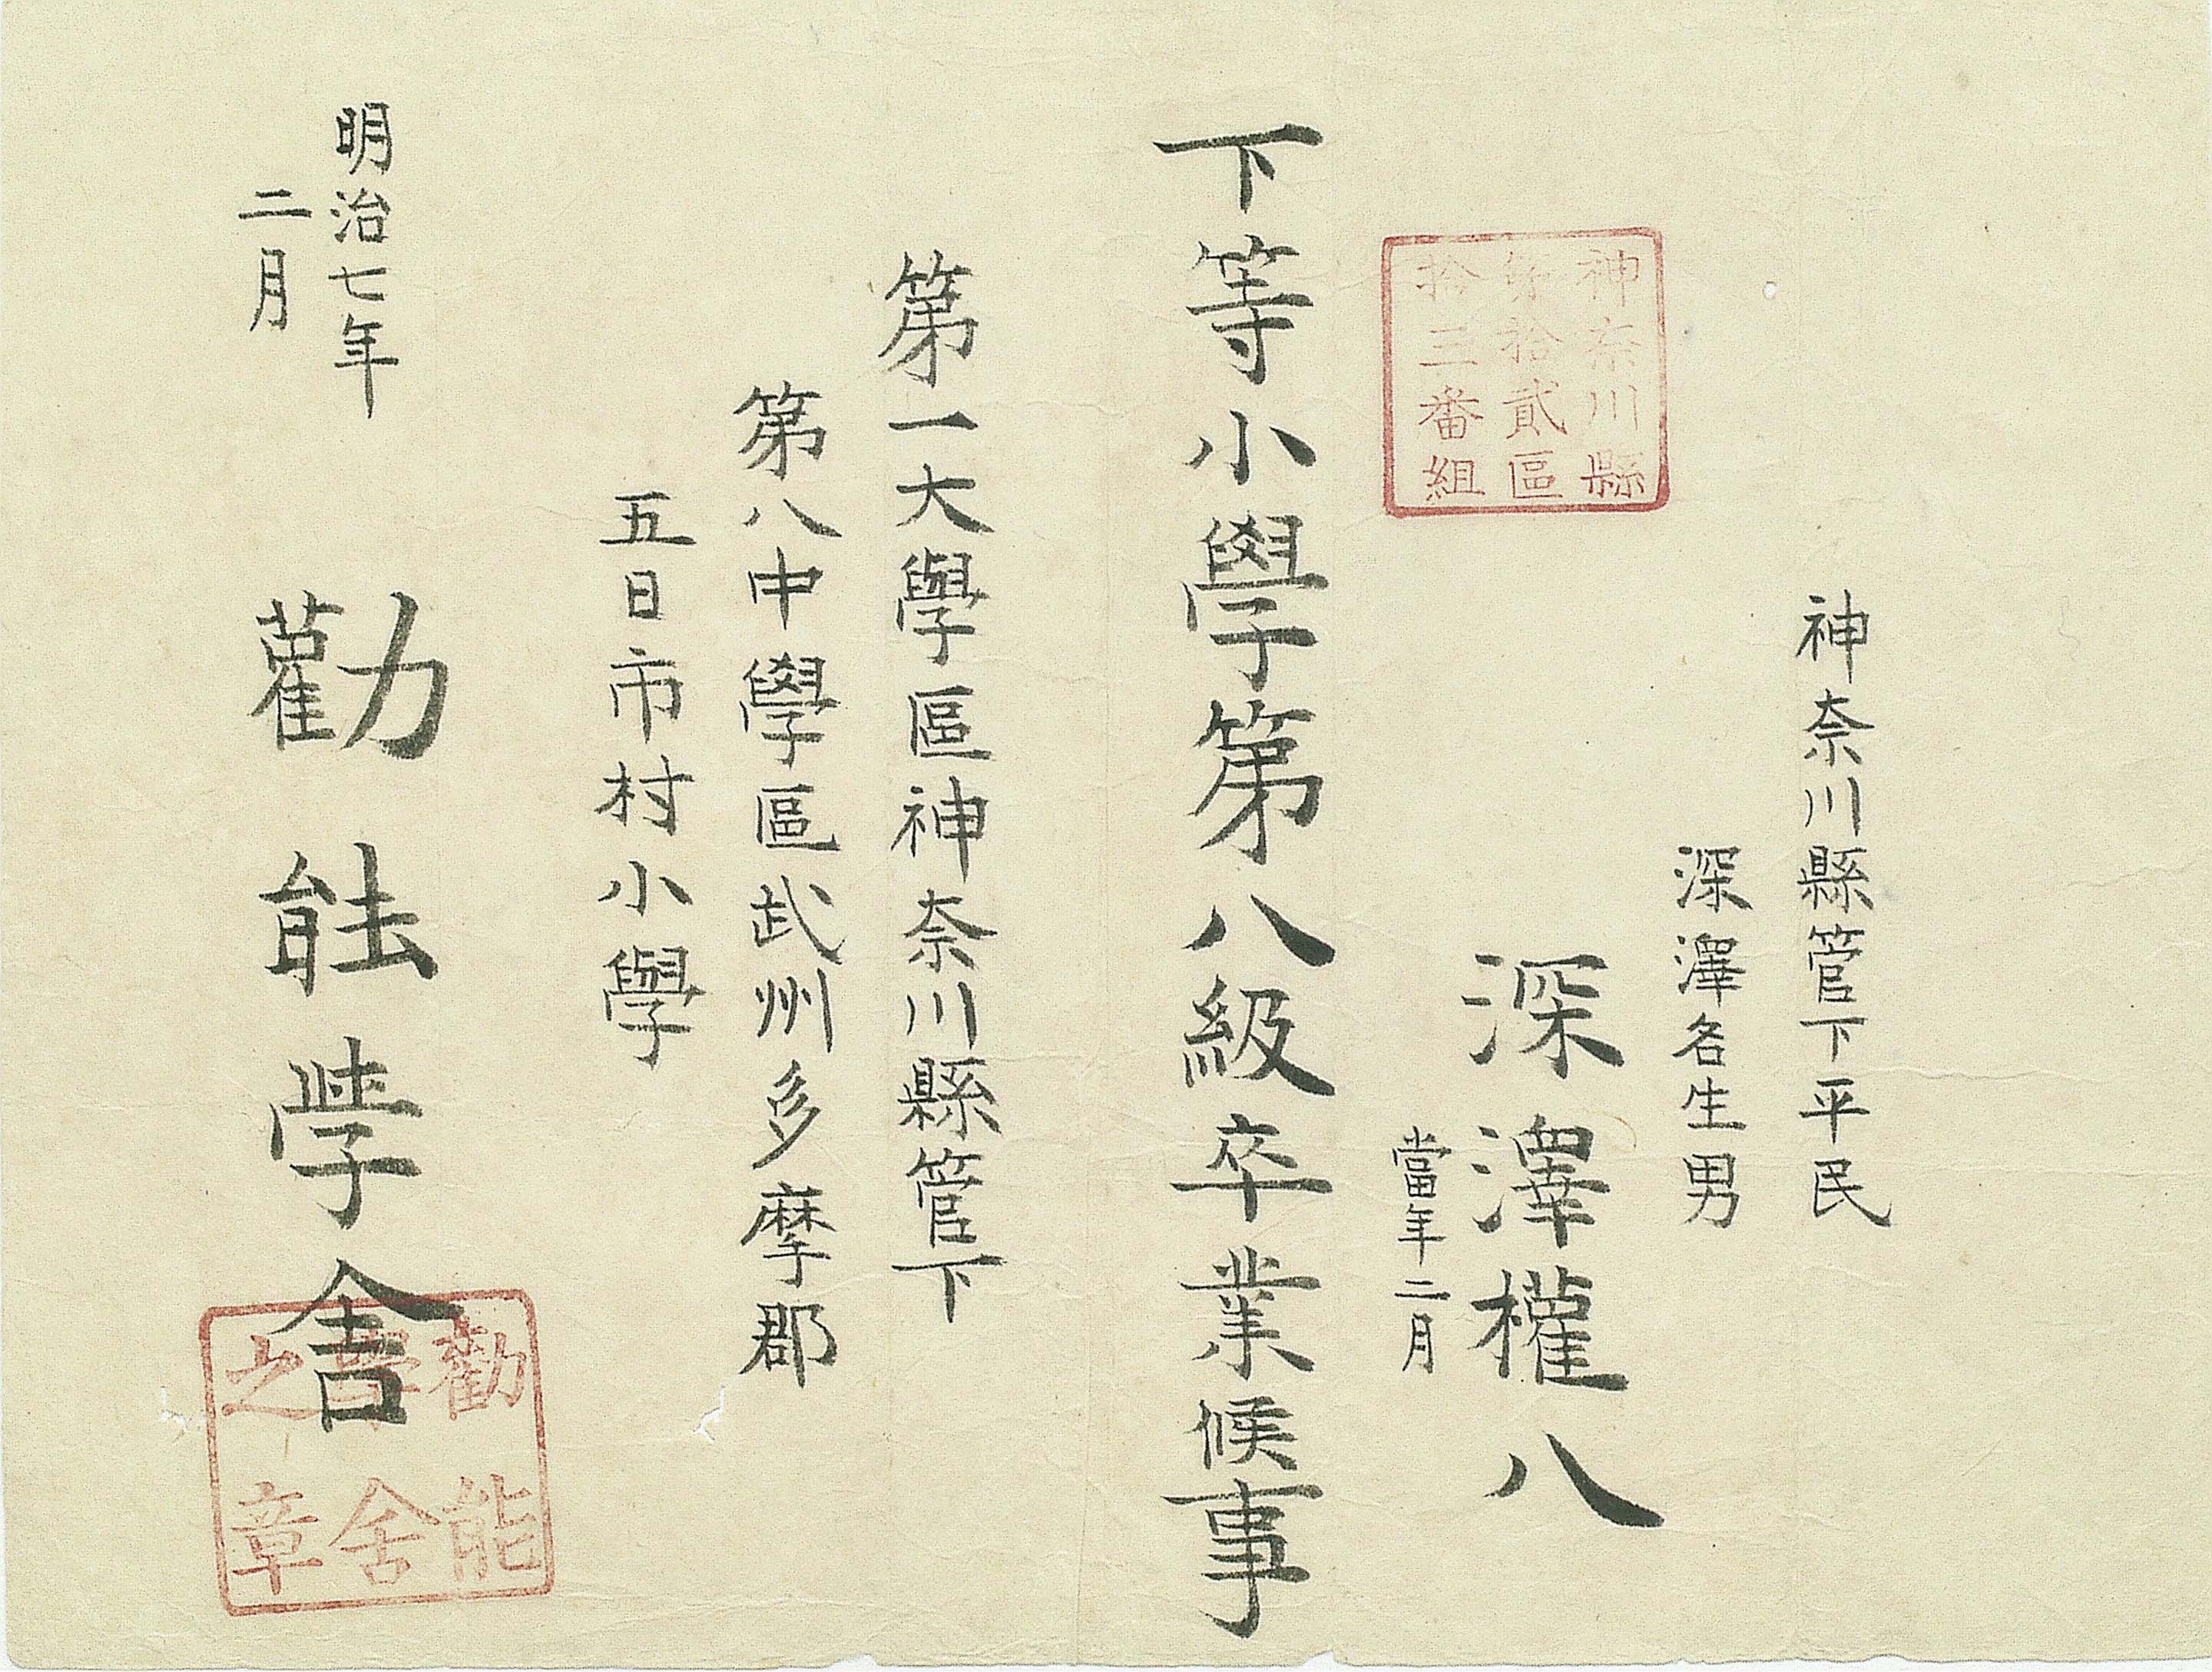 神奈川縣管下平民
深澤名生男
深澤權八
當年二月
神奈川縣
第拾貳區
拾三番組
下等小學第八級卒業候事
第一大學區神奈川縣管下
第八中學區武州多摩郡
五日市村小學
明治七年
二月
勸能學舍
勸能
學舍
之章